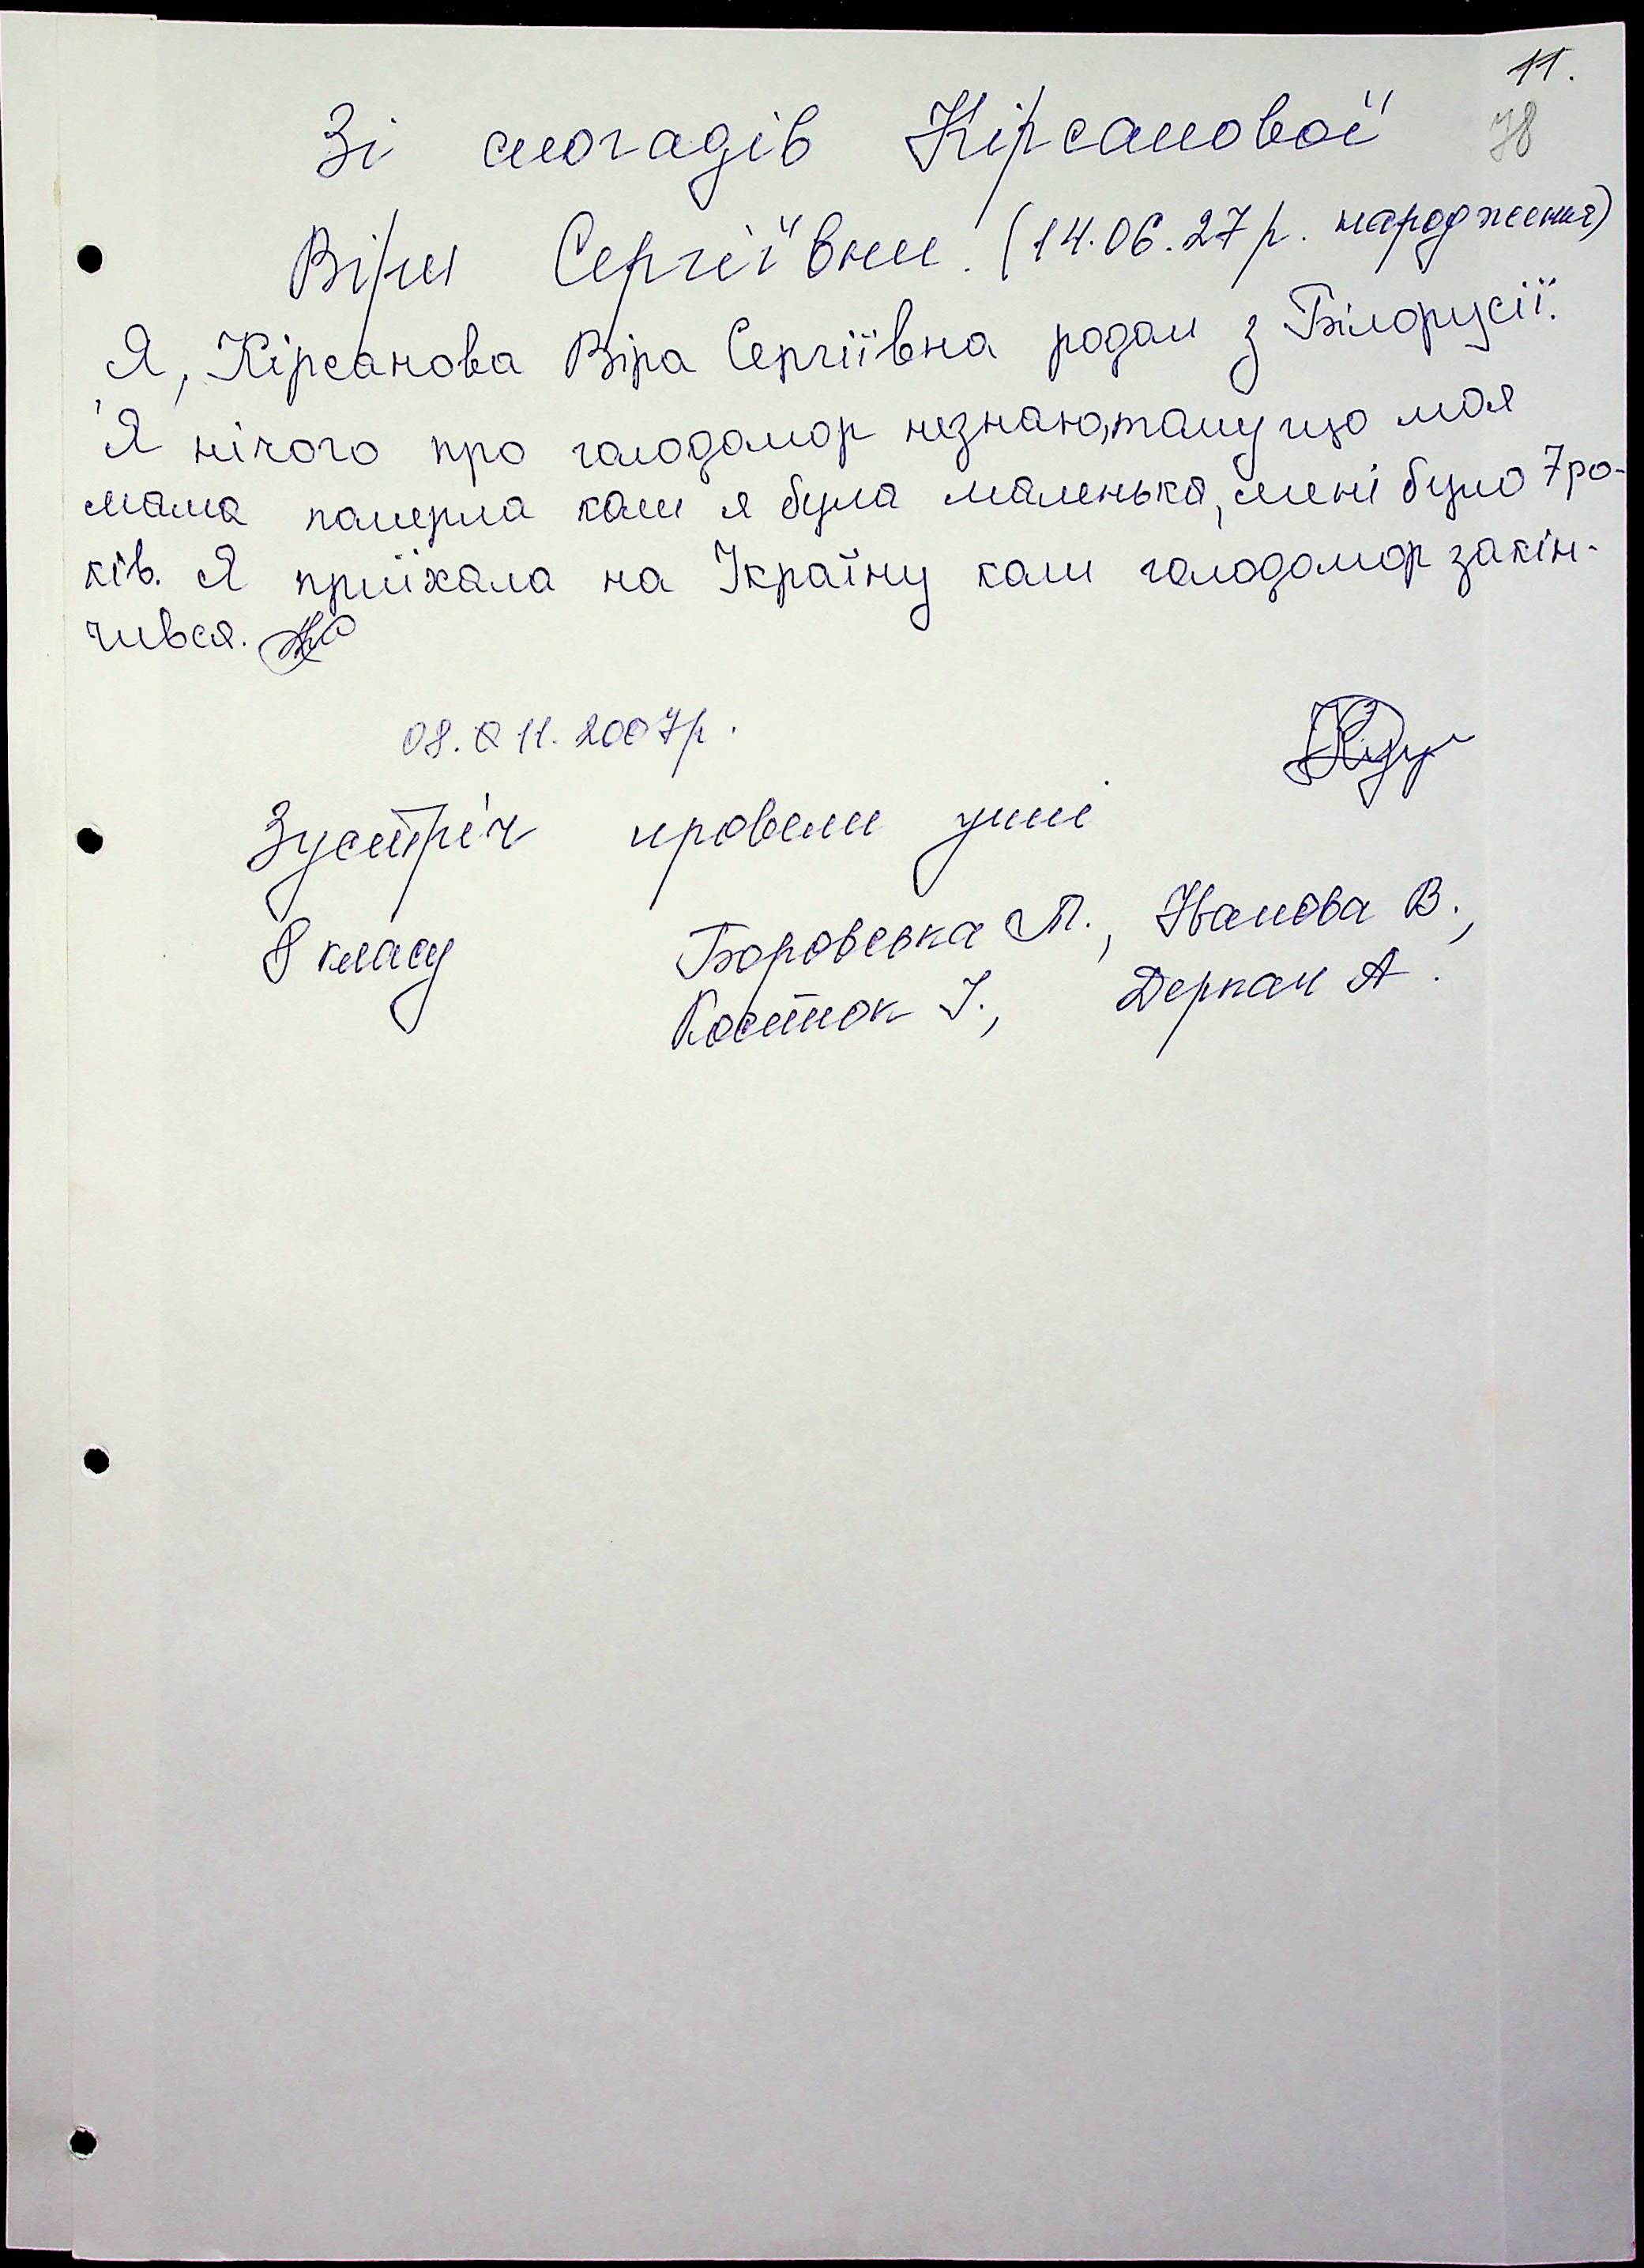 11.
78
Зі спогадів Кірсанової
Віри Сергіївни. (14.06.27р. народження)
Я, Кірсанова Віра Сергіївна родом з Білорусії.
Я нічого про голодомор незнаю, тому що моя
мама померла коли я була маленька, мені було 7 ро-
ків. Я приїхала на Україну коли голодомор закін-
чився.
08. 11. 2007р.
Зустріч провели учні
8 класу Боровська М., Іванова В.,
Костюк І., Деркач А.